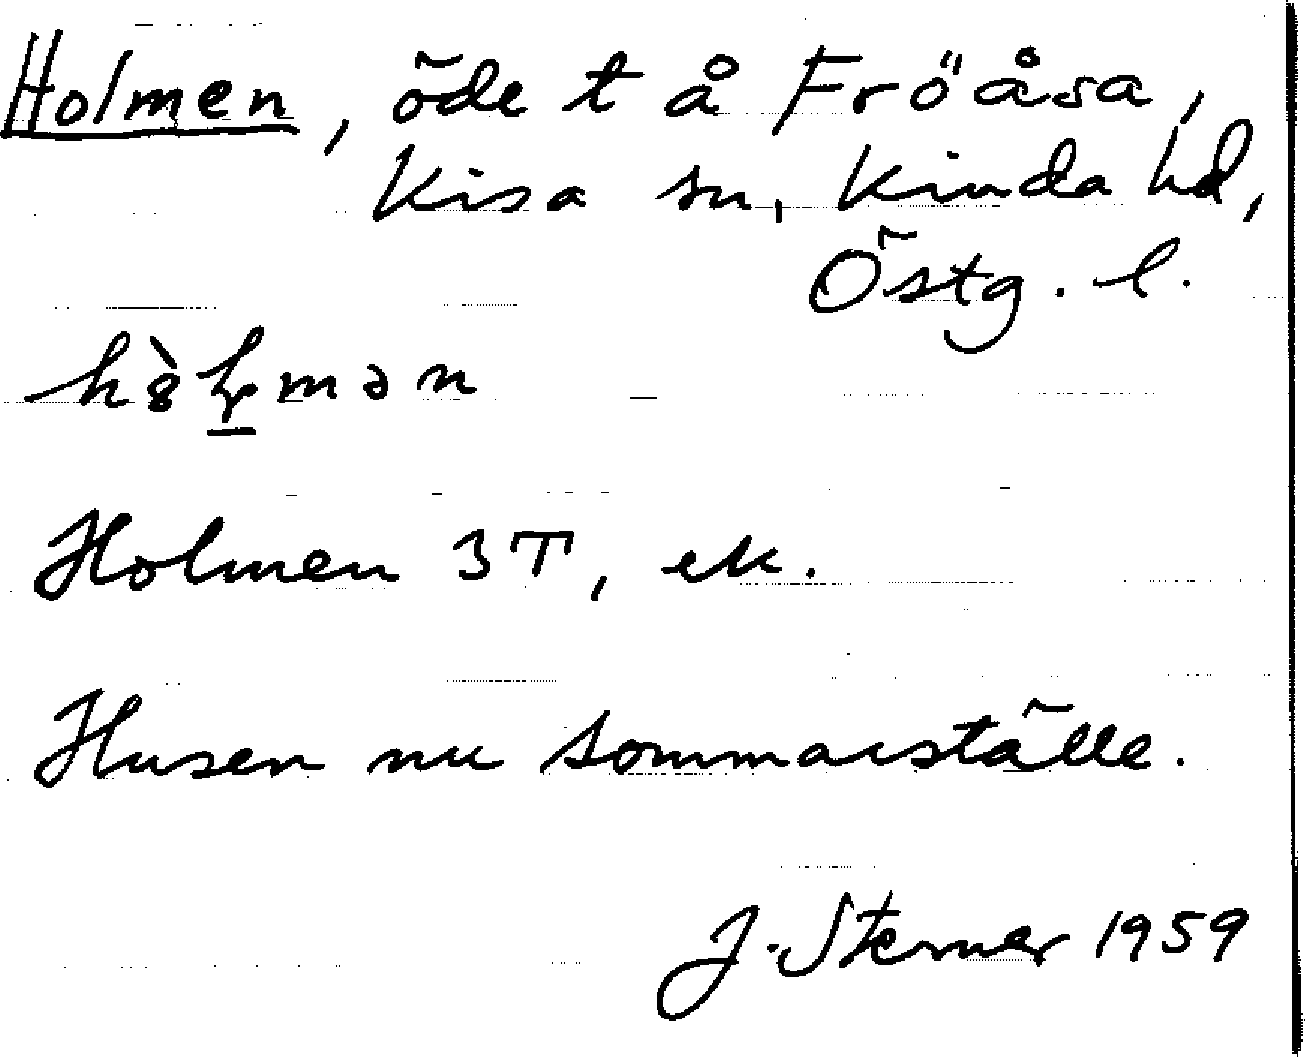 Holmen, öde t å Fröåsa,
Kisa sn, Kinda hd,
Östg. l.
hò̀ɫmən
Holmen 3T, ek.
Husen nu sommarställe.
J. Sterner 1959